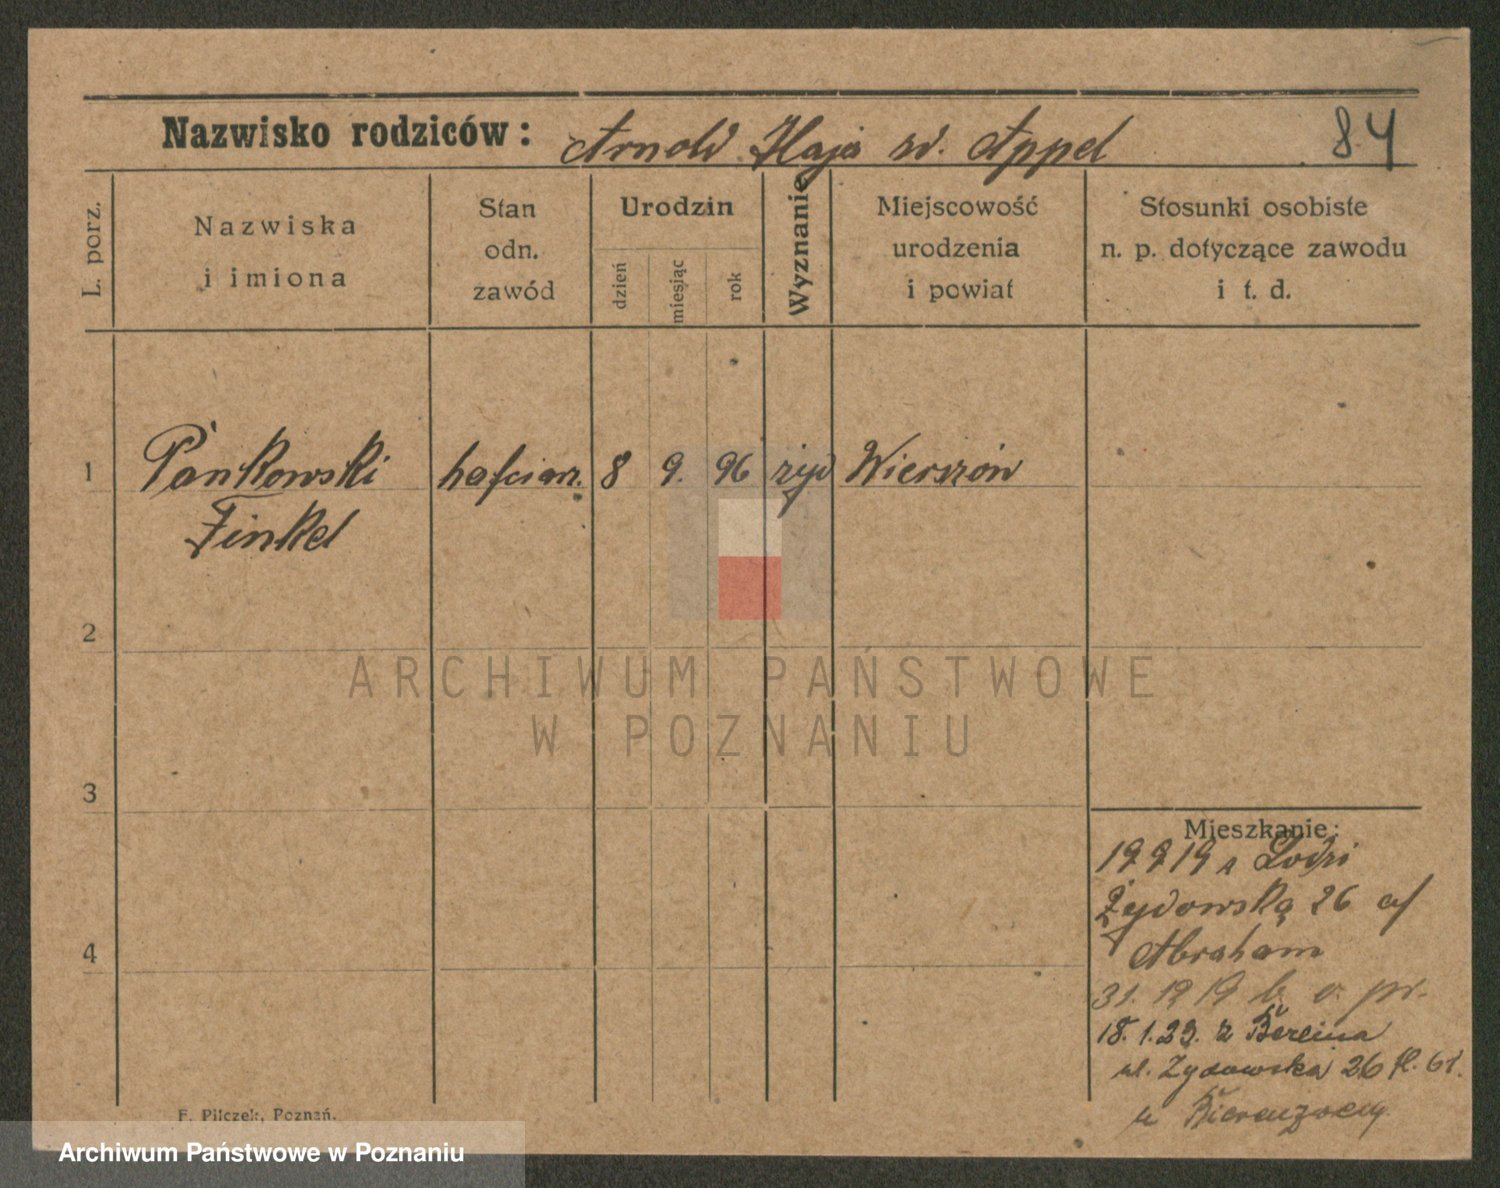 Nazwisko rodziców: Arnold Haja rd. Appel 84
L. porz.
Nazwiska
i imiona
Stan
odn.
zawód
Urodzin
dzień
miesiąc
rok
Wyznanie
Miejscowość
urodzenia
i powiat
Stosunki osobiste
n. p. dotyczące zawodu
i t. d.
1 Pankowski hafciarz. 8 9. 96 żyd Wierszów
Finkel
2
ARCHIWUM PAŃSTWOWE
W POZNANIU
3
Mieszkanie:
19 9 19 z Łodzi
Żydowska 26 a/
Abraham
4
31. 19 19 b. o. pr.
18. 1. 23. z Berlina
ul. Żydowska 26 II. 61.
u
F. Pilczek, Poznań.
Archiwum Państwowe w Poznaniu